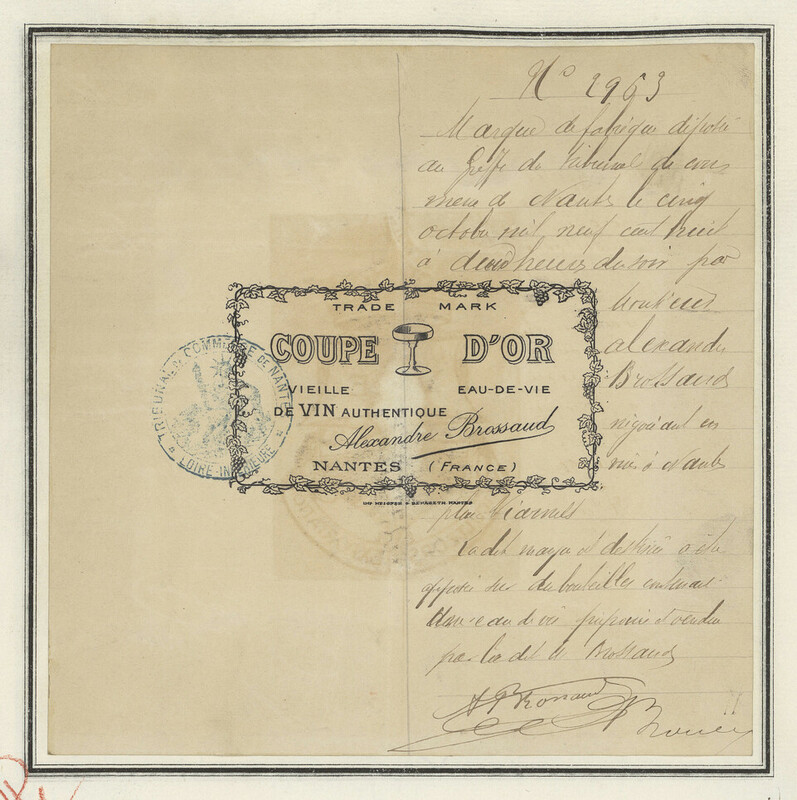 No 2963
Marque de fabrique déposée
au Greffe du Tribunal de com
merce de Nantes le cinq
octobre mil neuf cent huit
à deux heures du soir par
Monsieur
Alexandre
Brossaud
négociant en
à Nantes
place Viarmes
La dite marque est destinée à être
apposée sur des bouteilles contenant
eau de vie et vendue
par le dit M Brossaud
A Brossaud
TRADE MARK
COUPE D'OR
VIEILLE EAU-DE-VIE
DE VIN AUTHENTIQUE
Alexandre Brossaud
NANTES (FRANCE)
TRIBUNAL DE COMMERCE DE NANTES
LOIRE-INFÉRIEURE